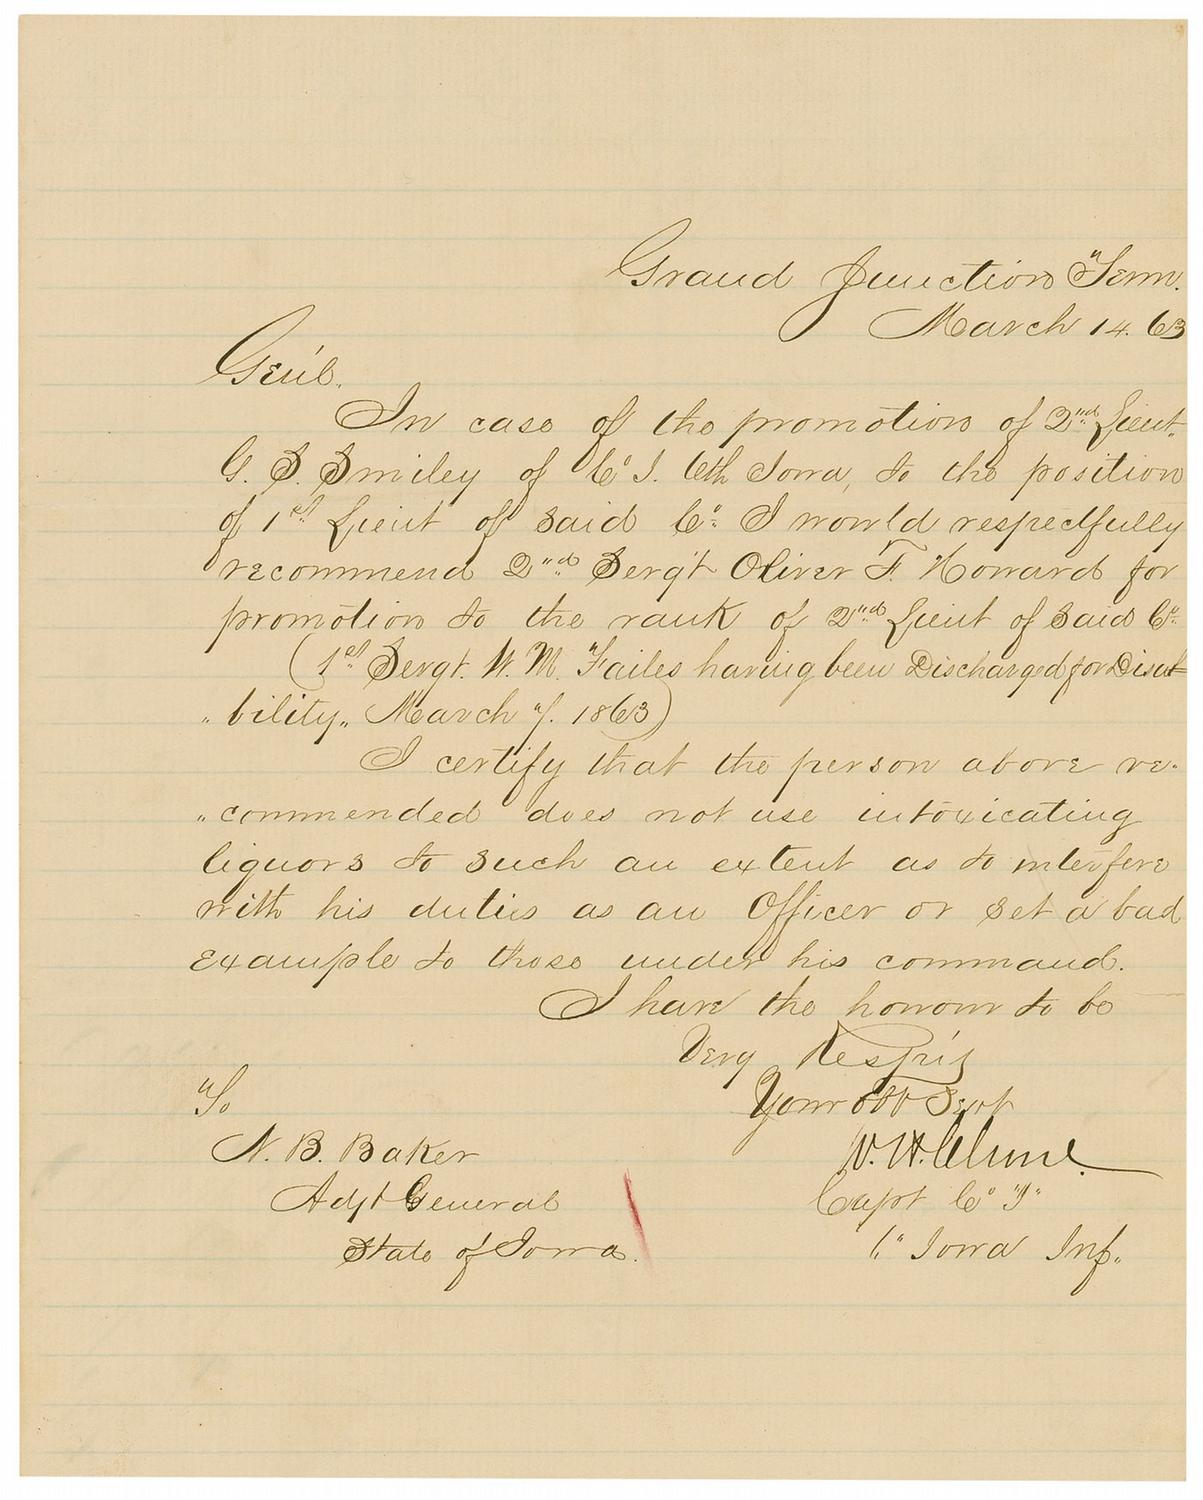 Grand Junction Tenn.
March 14. 63
Gen'l.
In case of the promotion of 2nd Lieut.
G. S. Smiley of Co I. 6th Iowa, to the position
of 1st Lieut of said Co. I would respectfully
recommend 2nd Sergt Oliver F. Howard for
promotion to the rank of 2nd Lieut of said Co.
(1st Sergt. W. M. Failes having been Discharged for Disa-
"bility" March 7. 1863)
I certify that the person above re-
"commended does not use intoxicating
liquors to such an extent as to interfere
with his duties as an Officer or set a bad
example to those under his command.
I have the honour to be
Very Resp'y
Your Obt Servt
To
W. H. Clune.
N. B. Baker
Capt Co "I"
Adjt General
6" Iowa Inf.
State of Iowa.